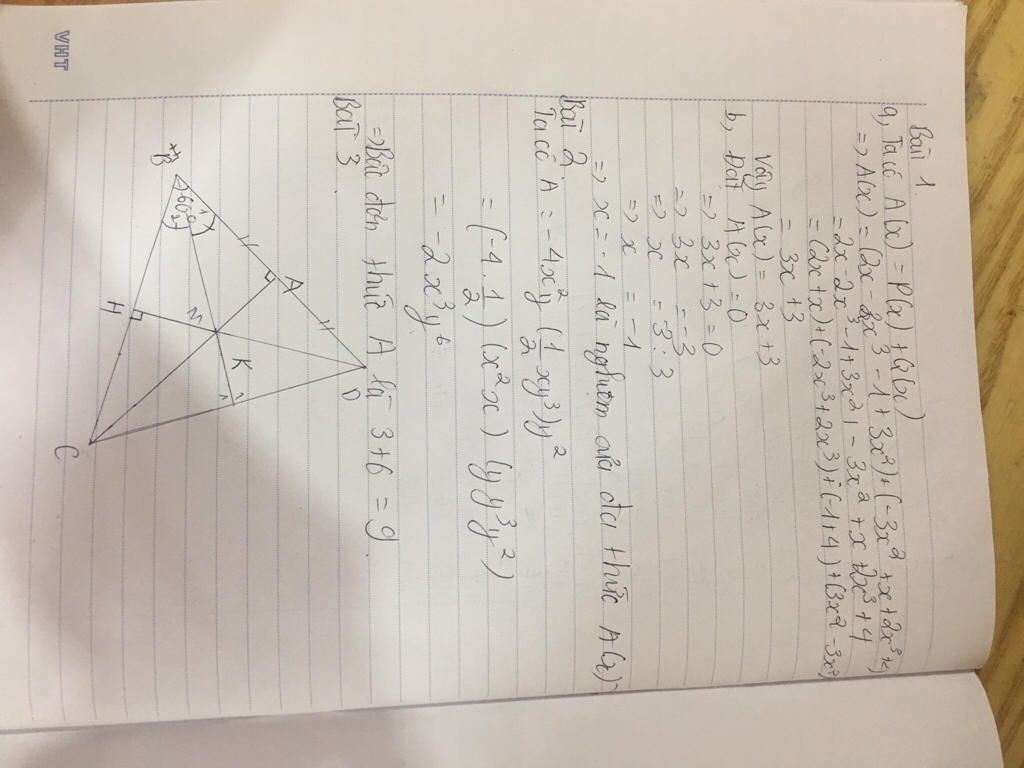 Bài 1.
a, Ta có A(x) = P(x) + Q(x)
=> A(x) = (2x - 2x³ - 1 + 3x²) + (-3x² + x + 2x³ + 4)
= 2x - 2x³ - 1 + 3x² - 3x² + x + 2x³ + 4
= (2x + x) + (-2x³ + 2x³) + (-1 + 4) + (3x² - 3x²)
= 3x + 3
Vậy A(x) = 3x + 3
b, Đặt A(x) = 0
=> 3x + 3 = 0
=> 3x = -3
=> x = -3 : 3
=> x = -1
=> x = -1 là nghiệm của đa thức A(x)
Bài 2.
Ta có A = -4x²y (1/2 xy³) y²
= (-4 . 1/2) (x²x) (y y³ y²)
= -2x³y⁶
=> Bậc đơn thức A là 3 + 6 = 9
Bài 3
D
A
K
M
B
60°
1
2
H
C
VHT